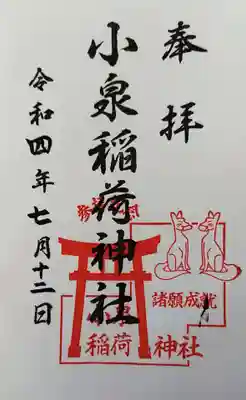 奉拝
小泉稲荷神社
令和四年七月十二日
諸願成就
稲荷神社